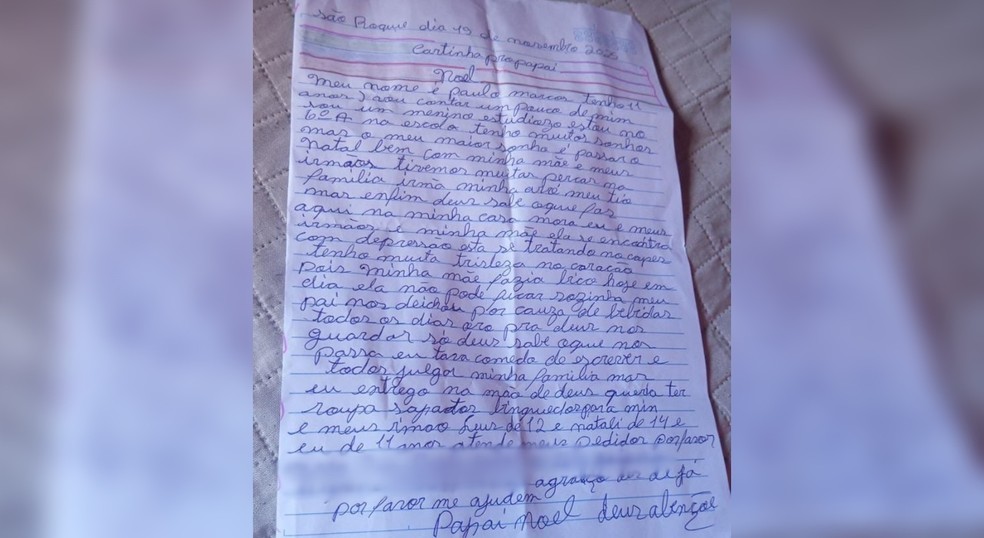 são Roque dia 19 de novembro
Cartinha pro papai
Noel
Meu nome é paulo marcos tenho 11
anos) vou contar um pouco de mim
sou um menino estudiozo estau no
6º A na escola tenho muitos sonhos
mas o meu maior sonho é passar o
natal bem com minha mãe e meus
irmãos tivemos muitas percas na
familia irmã minha avó meu tio
mas enfim deus sabe oque fas
aqui na minha casa mora eu e meus
irmãos e minha mãe ela se encontra
com depressão esta se tratando no capes
tenho muita tristeza no coração
pois minha mãe fazia bico hoje em
dia ela não pode ficar sozinha meu
pai nos deichou por cauza de bebidas
todos os dias oro pra deus nos
guardar só deus sabe oque nos
passa eu tava comedo de escrever e
todos julgar minha familia mas
eu entrego na mão de deus queria ter
roupa sapatos binquedos para min
e meus irmão de 12 e natali de 14 e
eu de 11 anos atende meus pedidos porfavor
agraço des de já
porfavor me ajudem
Papai Noel deus abençoe